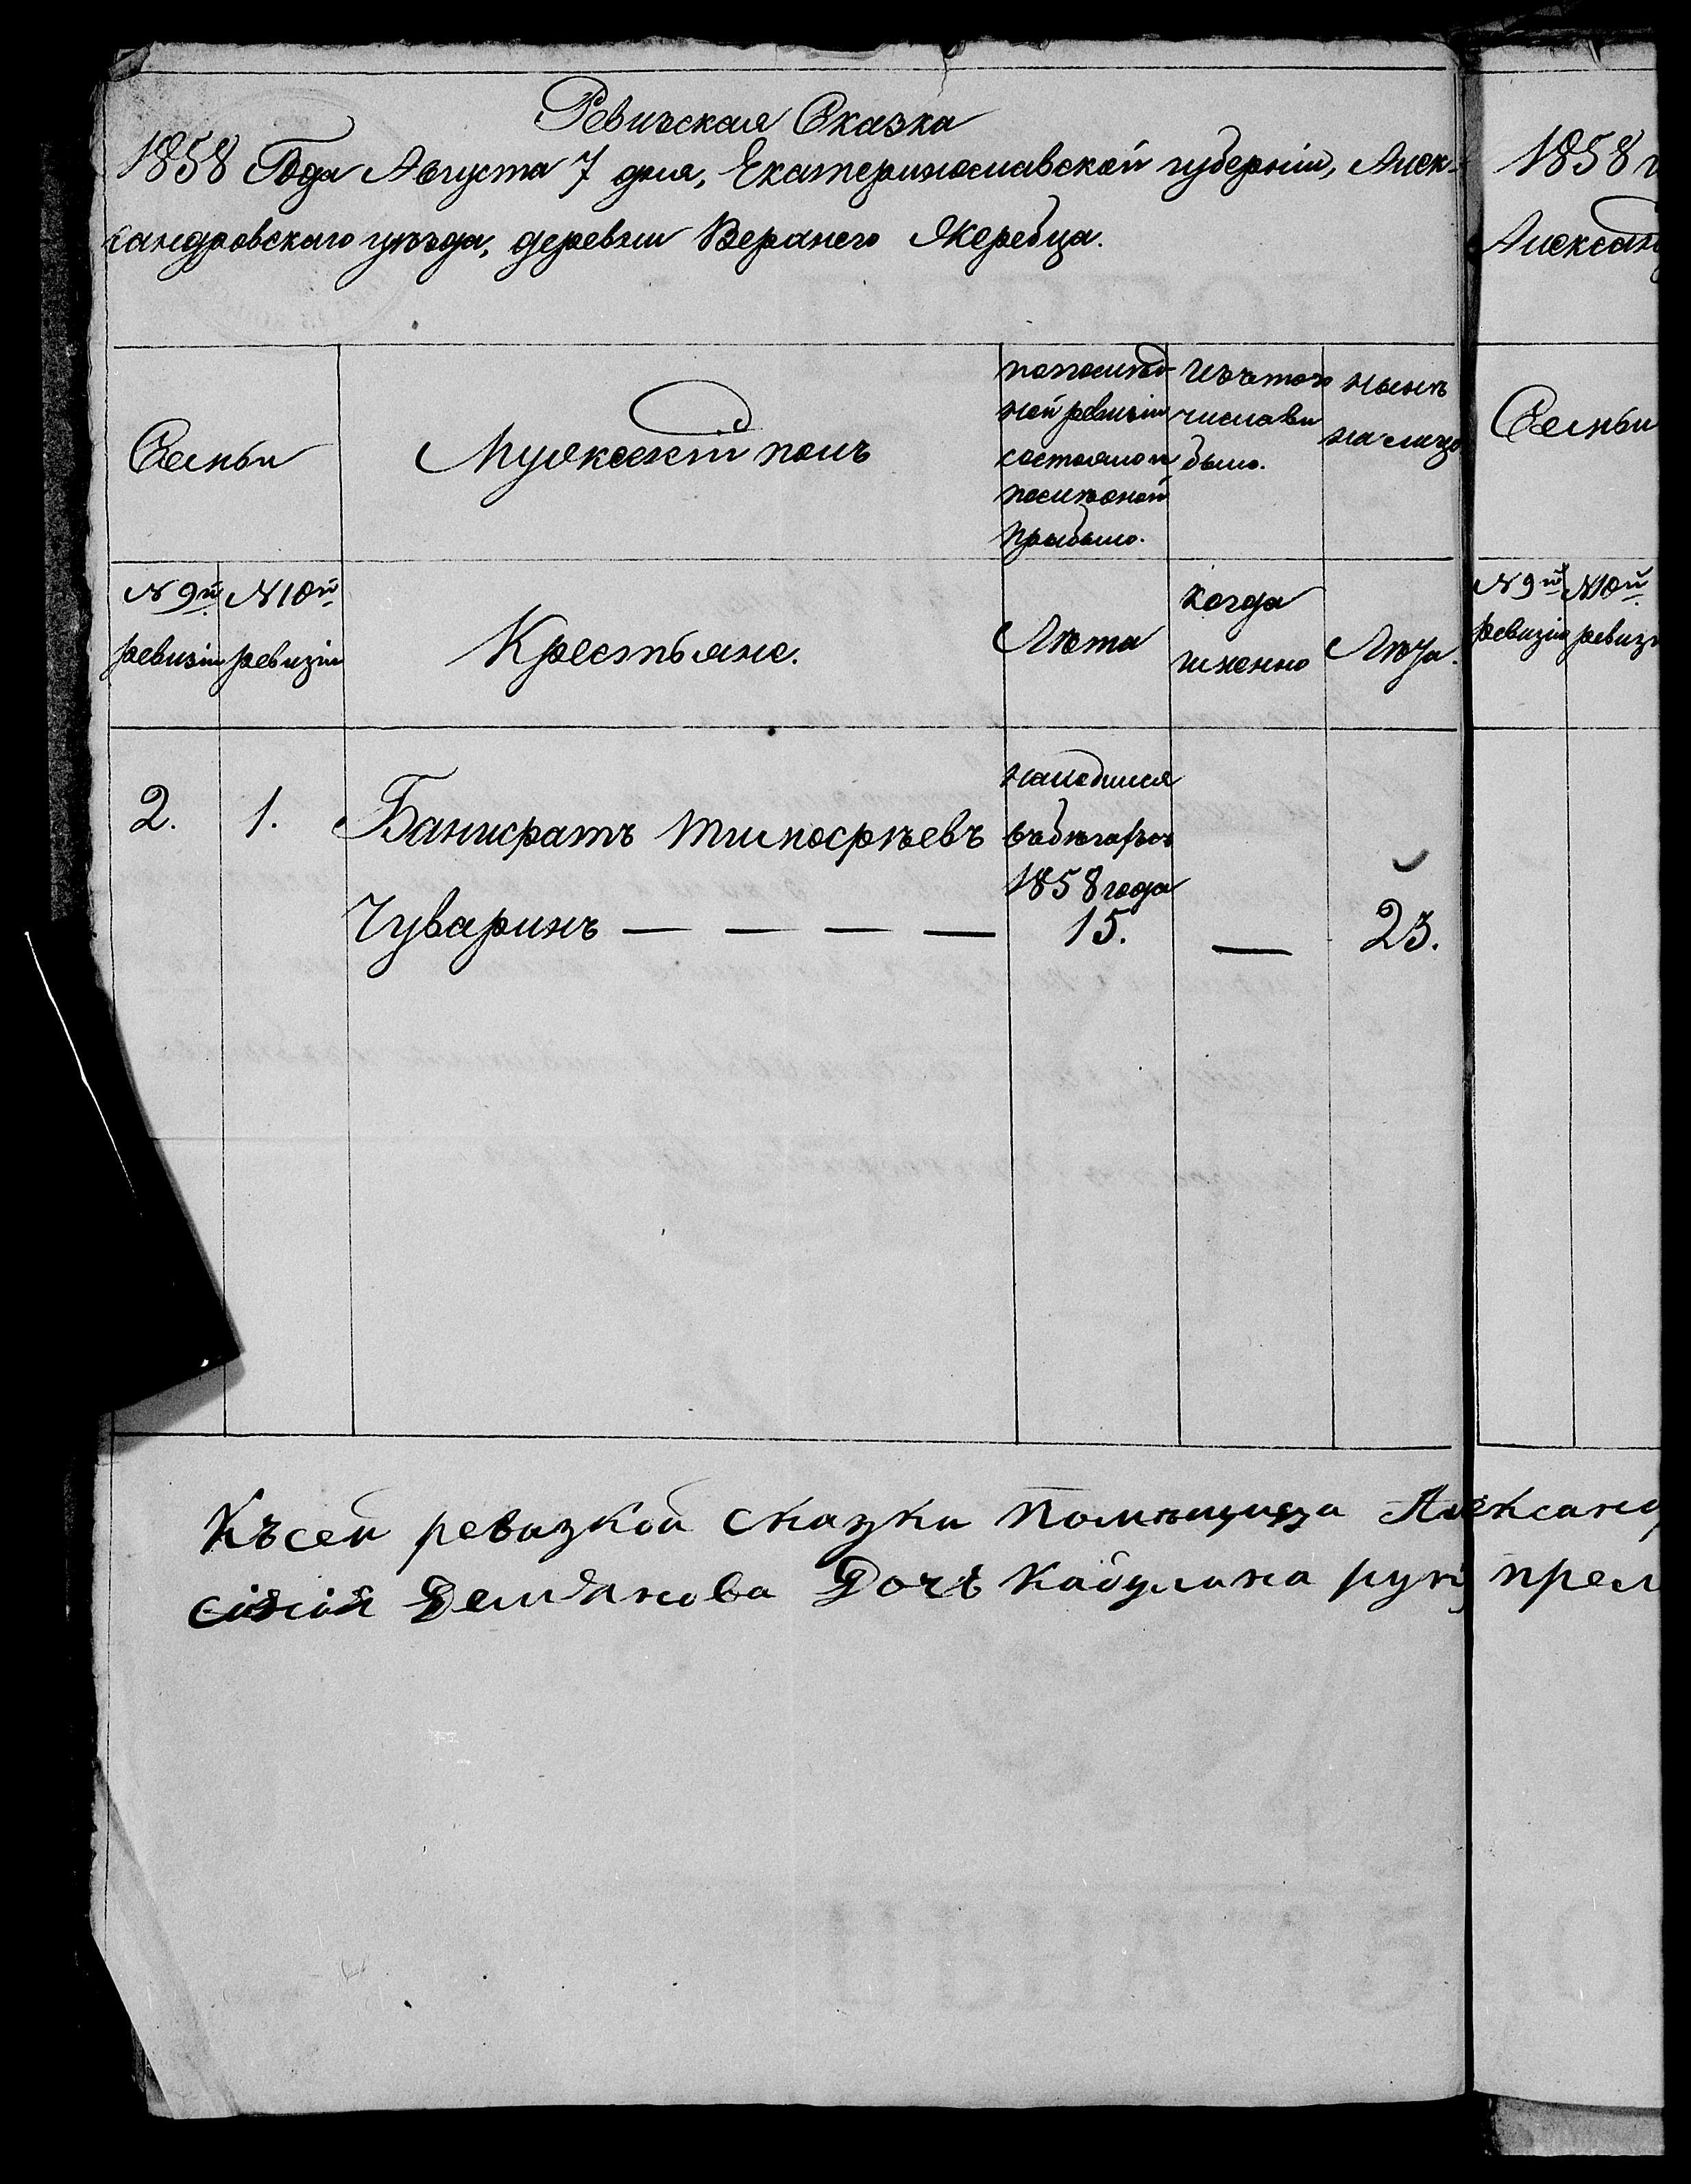 Ревизская Сказка
1858 Года Августа 7 дня, Екатеринославской губерніи, Алек-
сандровскаго уѣзда, деревни Верхнего Жеребца.
Семьи
Мужескій полъ
попослѣд-
ной ревизіи
состояло и
послѣоной
прибыло.
Изътого
числавы
было.
нынѣ
на лицо
№ 9й
ревизіи
№ 10й
ревизіи
Крестьяне.
Лѣта
когда
именно
Лѣта.
2. 1. Панкратъ Тимофѣевъ
находился
вбѣгахъ
1858 года
Чуваринъ — — — — 15. — 23.
Късей ревизкой сказки помѣщица Александ
Демянова Дочь Кабулина руку прел
1858 г
Александ
Семьи
№ 9й
ревизіи
№ 10й
ревиз